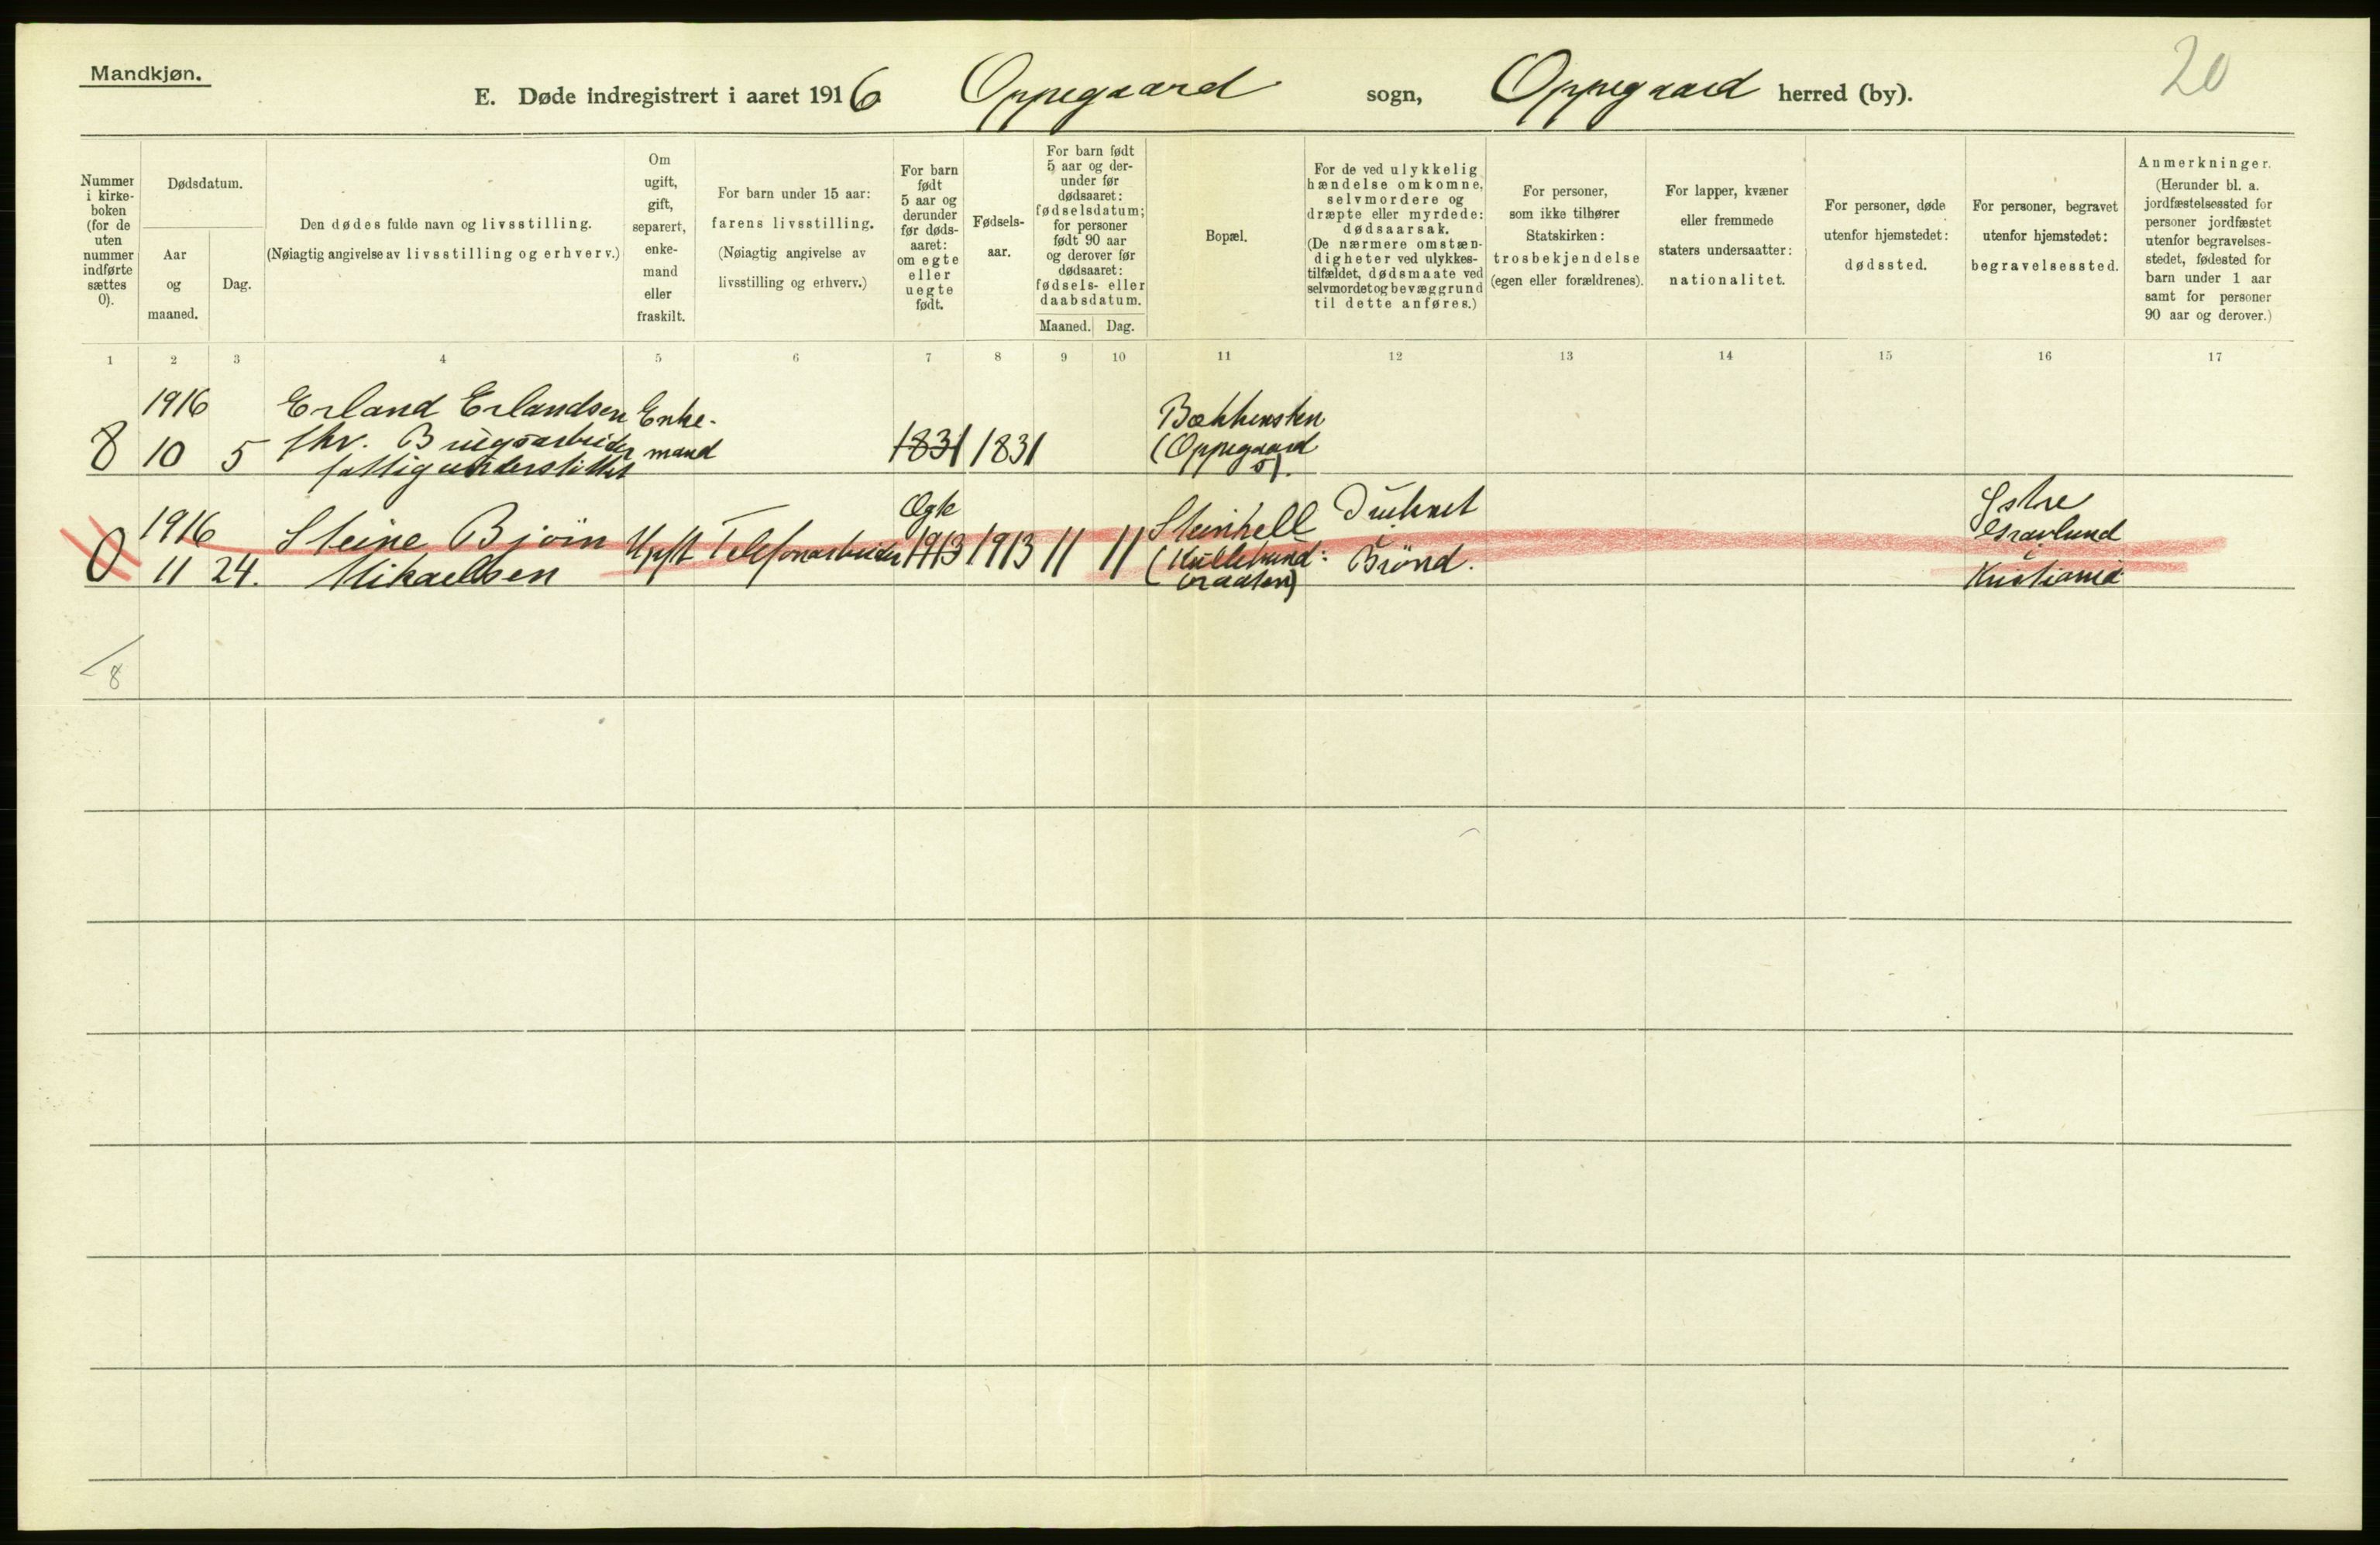 Mandkjøn.
E. Døde indregistrert i aaret 1916 Oppegaard sogn, Oppegaard herred (by).
20
Nummer
i kirke-
boken
(for de
uten
nummer
indførte
sættes
0).
Dødsdatum.
Aar
og
maaned.
Dag.
Den dødes fulde navn og livsstilling.
(Nøiagtig angivelse av livsstilling og erhverv.)
Om
ugift,
gift,
separert,
enke-
mand
eller
fraskilt.
For barn under 15 aar:
farens livsstilling.
(Nøiagtig angivelse av
livsstilling og erhverv.)
For barn
født
5 aar og
derunder
før døds-
aaret:
om egte
eller
uegte
født.
Fødsels-
aar.
For barn født
5 aar og der-
under før
dødsaaret:
fødselsdatum;
for personer
født 90 aar
og derover før
dødsaaret:
fødsels- eller
daabsdatum.
Maaned. Dag.
Bopæl.
For de ved ulykkelig
hændelse omkomne,
selvmordere og
dræpte eller myrdede:
dødsaarsak.
(De nærmere omstæn-
digheter ved ulykkes-
tilfældet, dødsmaate ved
selvmordet og bevæggrund
til dette anføres.)
For personer,
som ikke tilhører
Statskirken:
trosbekjendelse
(egen eller forældrenes).
For lapper, kvæner
eller fremmede
staters undersaatter:
nationalitet.
For personer, døde
utenfor hjemstedet:
dødssted.
For personer, begravet
utenfor hjemstedet:
begravelsessted.
Anmerkninger.
(Herunder bl. a.
jordfæstelsessted for
personer jordfæstet
utenfor begravelses-
stedet, fødested for
barn under 1 aar
samt for personer
90 aar og derover.)
1 2 3 4 5 6 7 8 9 10 11 12 13 14 15 16 17
8
1916
10 5
Erland Erlandsen
fhv. Brugsarbeider
fattigunderstøttet
Enke-
mand
1831
1831
Bækkensten
(Oppegaard
0
1916
11 24.
Steine Bjørn
Mikaelsen
Ugift
Telefonarbeider
Egte
1913
1913
11 11
Steinhell
(Kullebund-
braaten)
Druknet
i
Brønd.
Østre
Gravlund
Kristiania
8